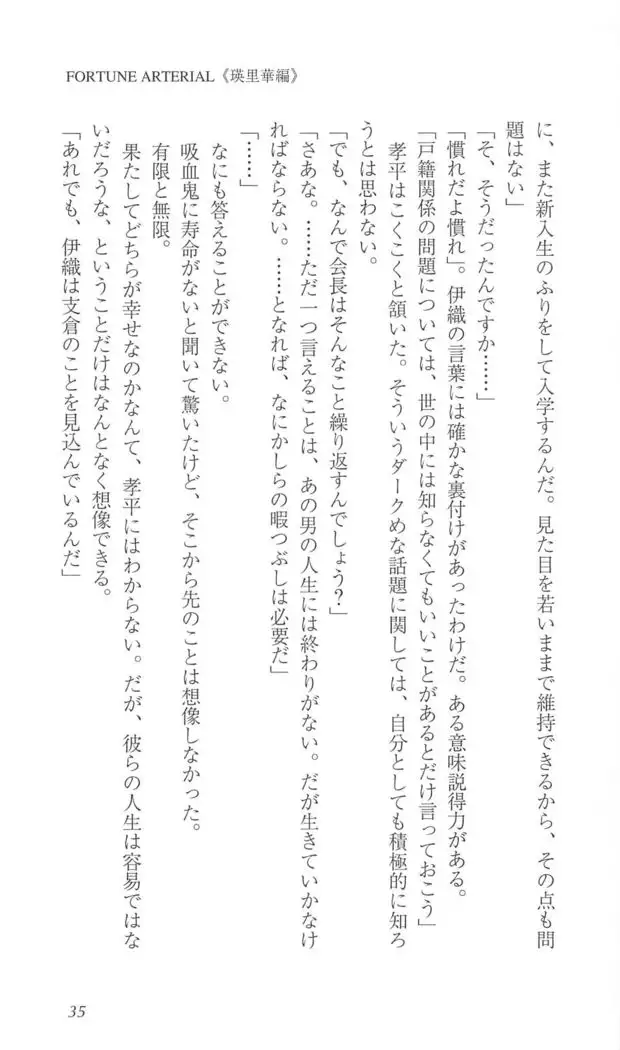 FORTUNE ARTERIAL《瑛里華編》
に、また新入生のふりをして入学するんだ。見た目を若いままで維持できるから、その点も問
題はない」
「そ、そうだったんですか……」
「慣れだよ慣れ」。伊織の言葉には確かな裏付けがあったわけだ。ある意味説得力がある。
「戸籍関係の問題については、世の中には知らなくてもいいことがあるとだけ言っておこう」
孝平はこくこくと頷いた。そういうダークめな話題に関しては、自分としても積極的に知ろ
うとは思わない。
「でも、なんで会長はそんなこと繰り返すんでしょう？」
「さあな。……ただ一つ言えることは、あの男の人生には終わりがない。だが生きていかなけ
ればならない。……となれば、なにかしらの暇つぶしは必要だ」
「……」
なにも答えることができない。
吸血鬼に寿命がないと聞いて驚いたけど、そこから先のことは想像しなかった。
有限と無限。
果たしてどちらが幸せなのかなんて、孝平にはわからない。だが、彼らの人生は容易ではな
いだろうな、ということだけはなんとなく想像できる。
「あれでも、伊織は支倉のことを見込んでいるんだ」
35